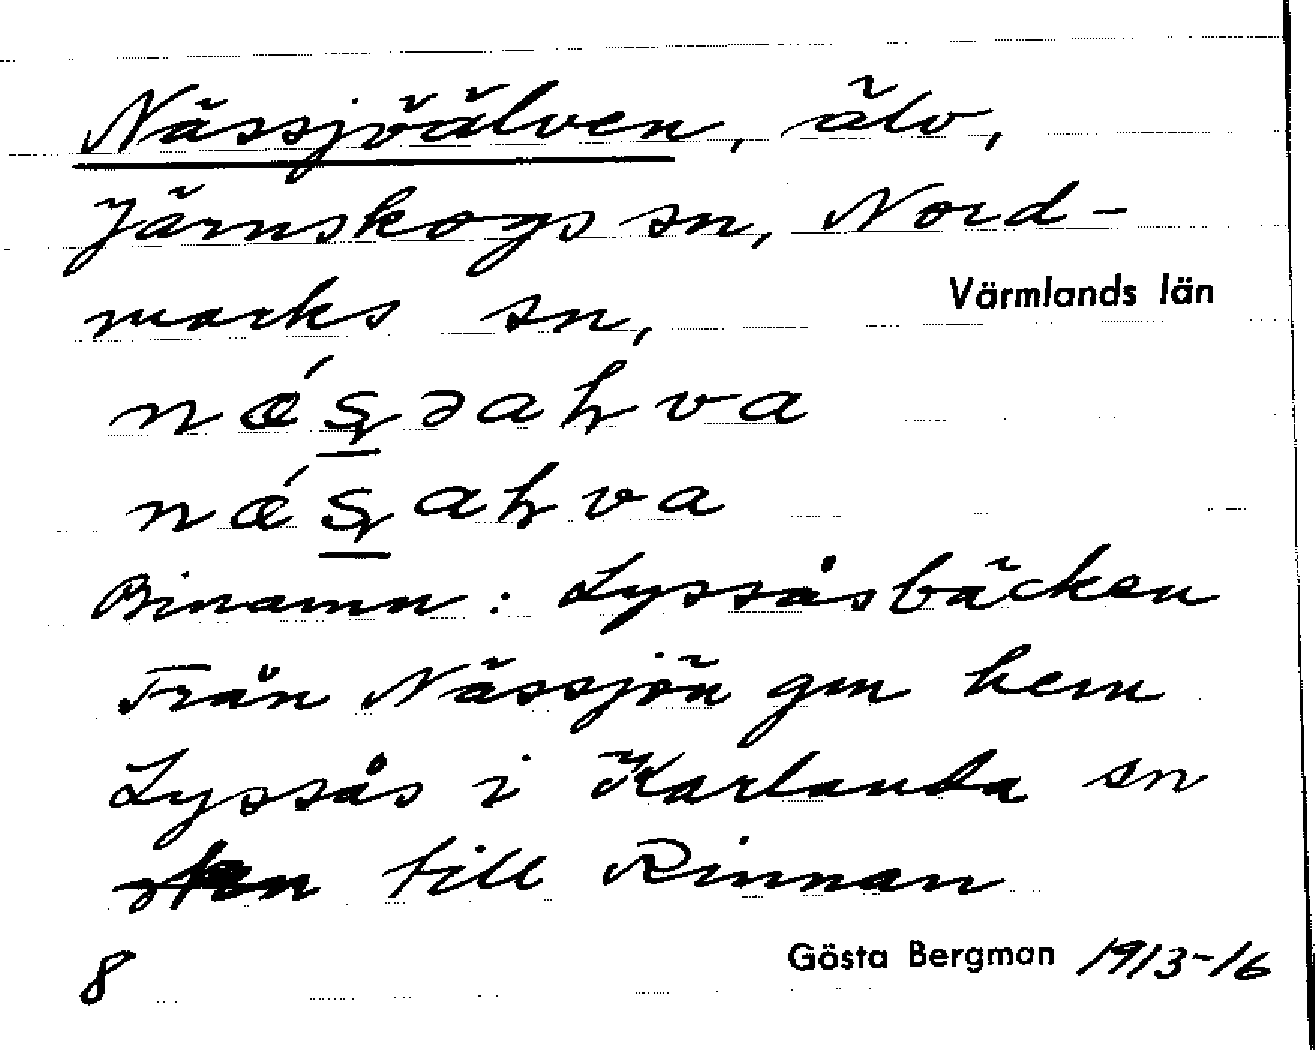 Nässjöälven, älv,
Järnskogs sn, Nord-
marks sn,
Värmlands län
næ´ʂəaɧva
næ´ʂaɧva
Binamn: Lyssåsbäcken
Från Nässjön gm hem
Lyssås i Karlanda sn
till Rinnan
8
Gösta Bergman 1913-16